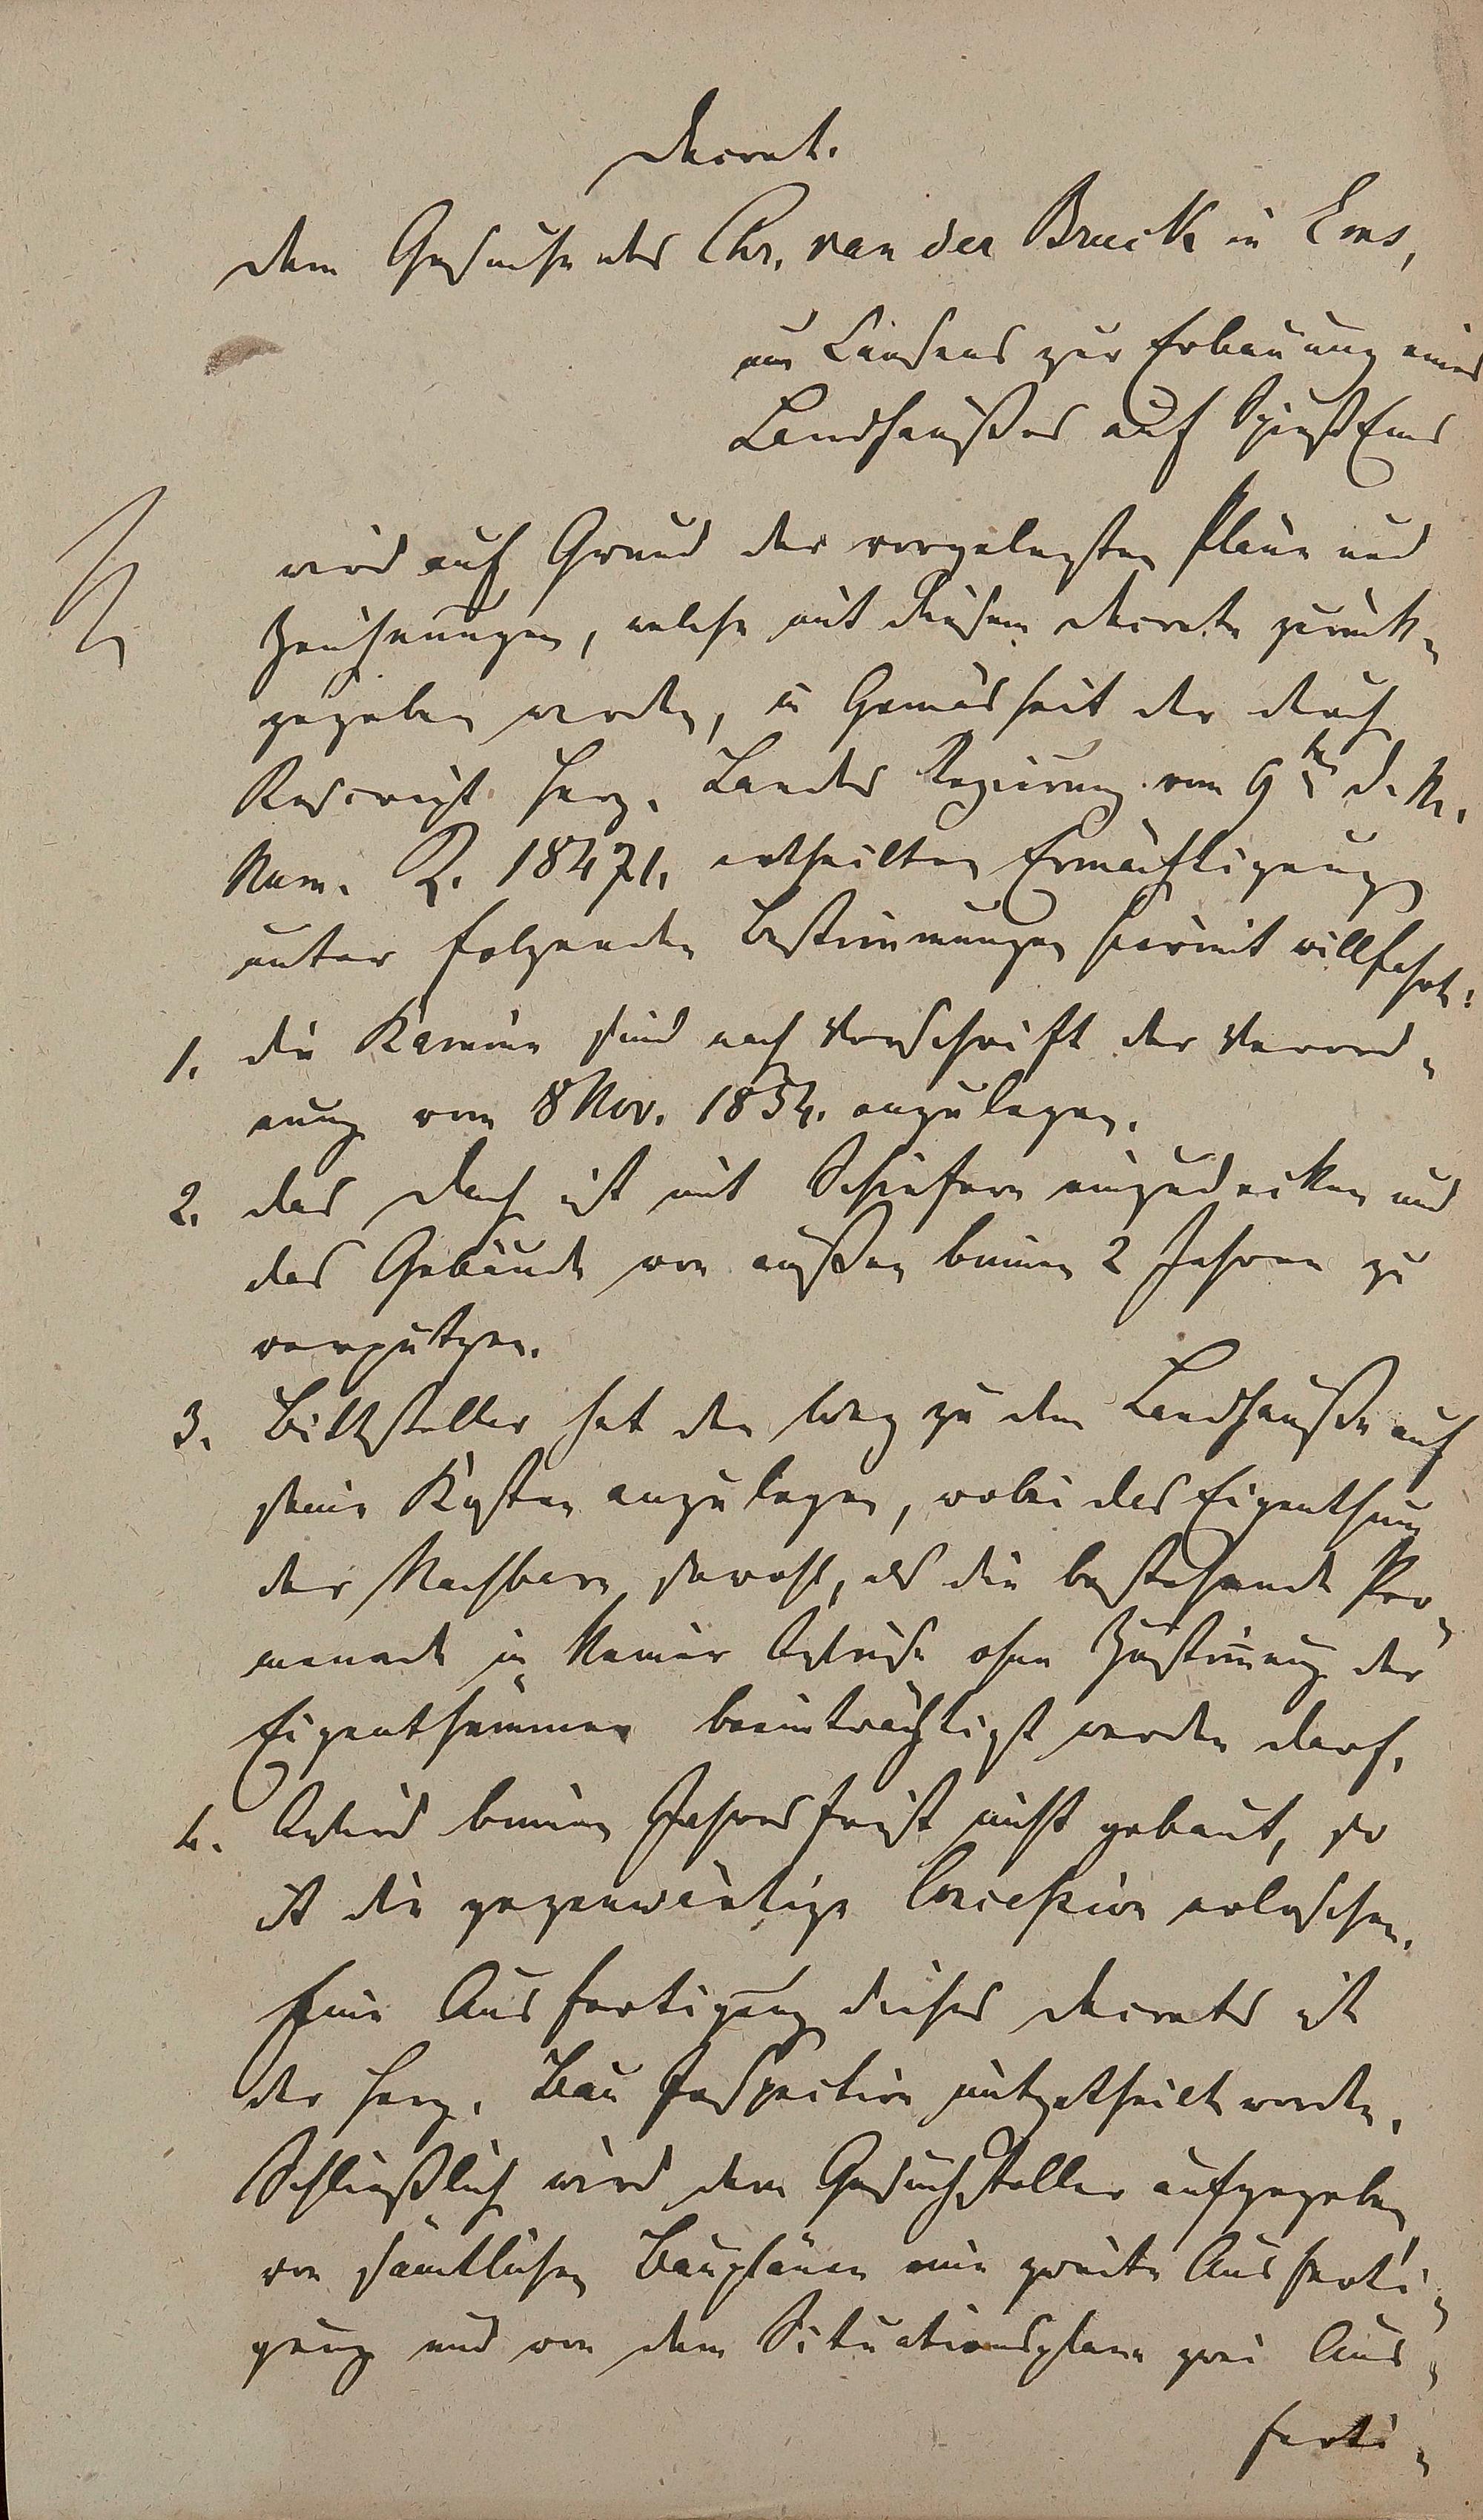 Decret.
Dem Gesuche des Chr. van der Bruck in Ems,
um Consens zur Erbauung eines
Landhaußes auf Spieß Ems
wird auf Grund der vorgelegten Pläne und
Zeichnungen, welche mit diesem Decrete zurück-
gegeben werden, in Gemäsheit der durch
Rescript Herz. Landes Regierung vom 9ten d. M.
Num. R. 18471. ertheilten Ermächtigung
unter folgenden Bestimmungen hiermit willfahrt:
1. die Kamine sind nach Vorschrift der Verord-
nung vom 8 Nov. 1854. anzulegen.
2. das Dach ist mit Schiefern einzudecken und
das Gebäude von außen binnen 2 Jahren zu
verputzen.
3. Bittsteller hat den Weg zu dem Landhauße auf
seine Kosten anzulegen, wobei das Eigenthum
der Nachbarn sowohl, als die bestehende Pro-
menade in keiner Weise ohne Zustimung der
Eigenthümmer beeinträchtigt werden darf.
4. Wird binnen Jahresfrist nicht gebaut, so
ist die gegenwärtige Concession erloschen.
Eine Ausfertigung dieses Decrets ist
der Herz. Bau Inspection mitgetheilt worden.
Schließlich wird dem Gesuchsteller aufgegeben
von sämtlichen Bauplänen eine zweite Ausferti-
gung und von dem Situationsplane zwei Aus-
ferti-